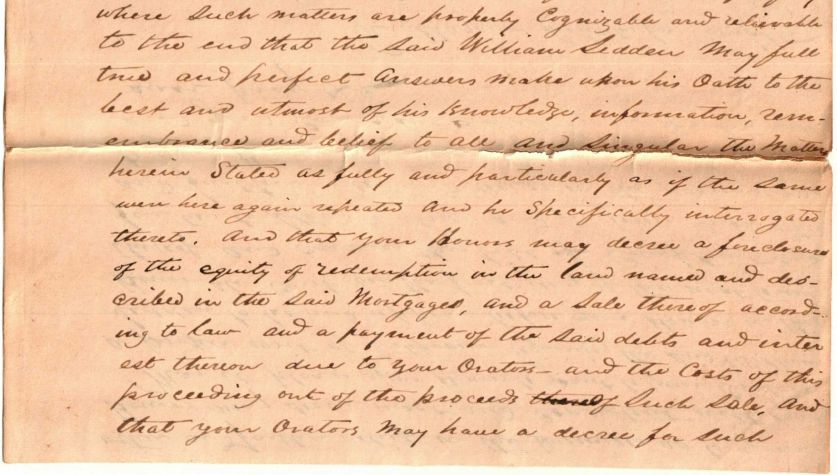 where such matters are properly Cognizable and relievable
to the end that the said William Sedden May full
true and perfect Answers make upon his Oath to the
best and utmost of his Knowledge, information, rem-
embrance and belief to all and singular the Matters
herein Stated as fully and particularly as if the same
were here again repeated And he Specifically interrogated
thereto. And that your Honors may decree a foreclosure
of the equity of redemption in the land named and des-
cribed in the said Mortgages, and a Sale thereof accord-
ing to law and a payment of the said debts and inter
est thereon due to your Orators – and the Costs of this
proceeding out of the proceeds thereof Such Sale, And
that your Orators May have a decree for such